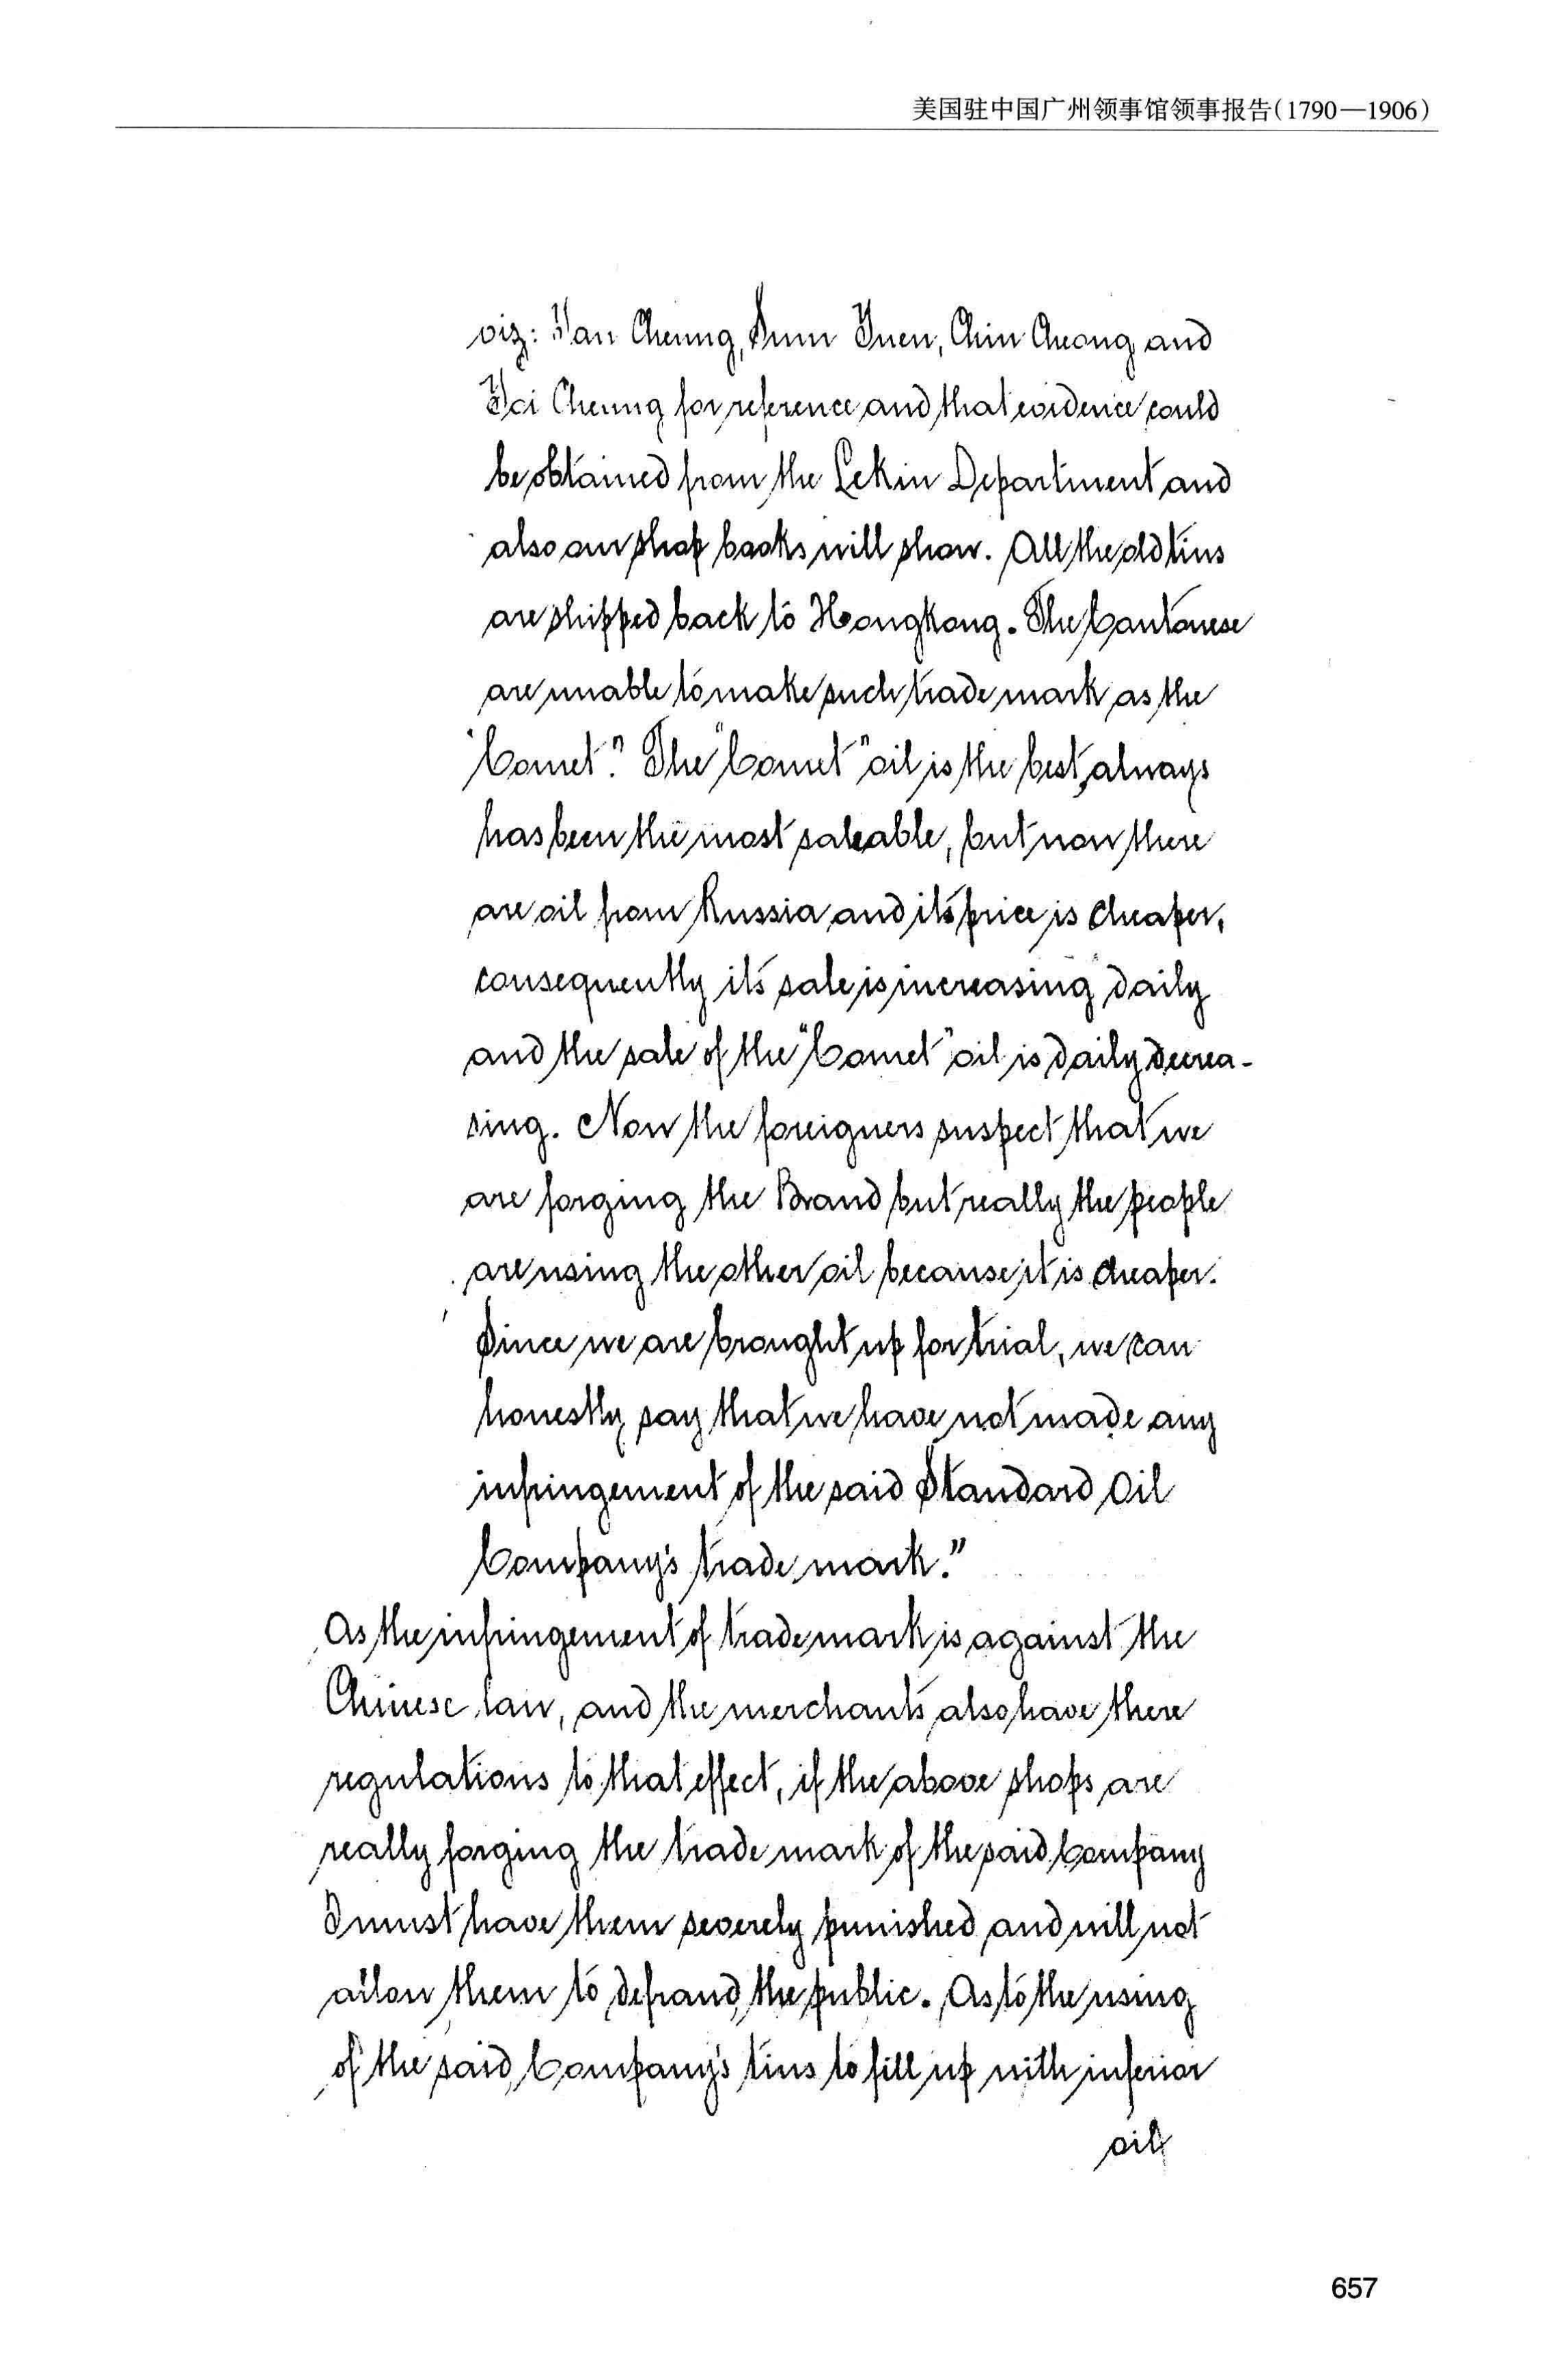 美国驻中国广州领事馆领事报告(1790—1906)
viz: Yan Cheung, Sun Yuen, Chin Cheong and
Tai Cheung for reference and that evidence could
be obtained from the Lekin Department and
also our shop books will show. All the old tins
are shipped back to Hongkong. The Cantonese
are unable to make such trade mark as the
"Comet". The "Comet" oil is the best, always
has been the most saleable, but now there
are oil from Russia and its price is cheaper,
consequently its sale is increasing daily
and the sale of the "Comet" oil is daily decrea-
sing. Now the foreigners suspect that we
are forging the Brand but really the people
are using the other oil because it is cheaper.
Since we are brought up for trial, we can
honestly say that we have not made any
infringement of the said Standard Oil
Company's trade mark."
As the infringement of trade mark is against the
Chinese law, and the merchants also have there
regulations to that effect, if the above shops are
really forging the trade mark of the said Company
I must have them severely punished and will not
allow them to defraud the public. As to the using
of the said Company's tins to fill up with inferior
oil
657